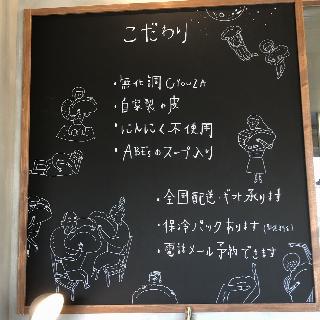 こだわり
・無化調GYOUZA
・自家製の皮
・にんにく不使用
・ABE'sのスープ入り
・全国配送・ギフト承ります
・保冷パックあります
・電話メール予約できます